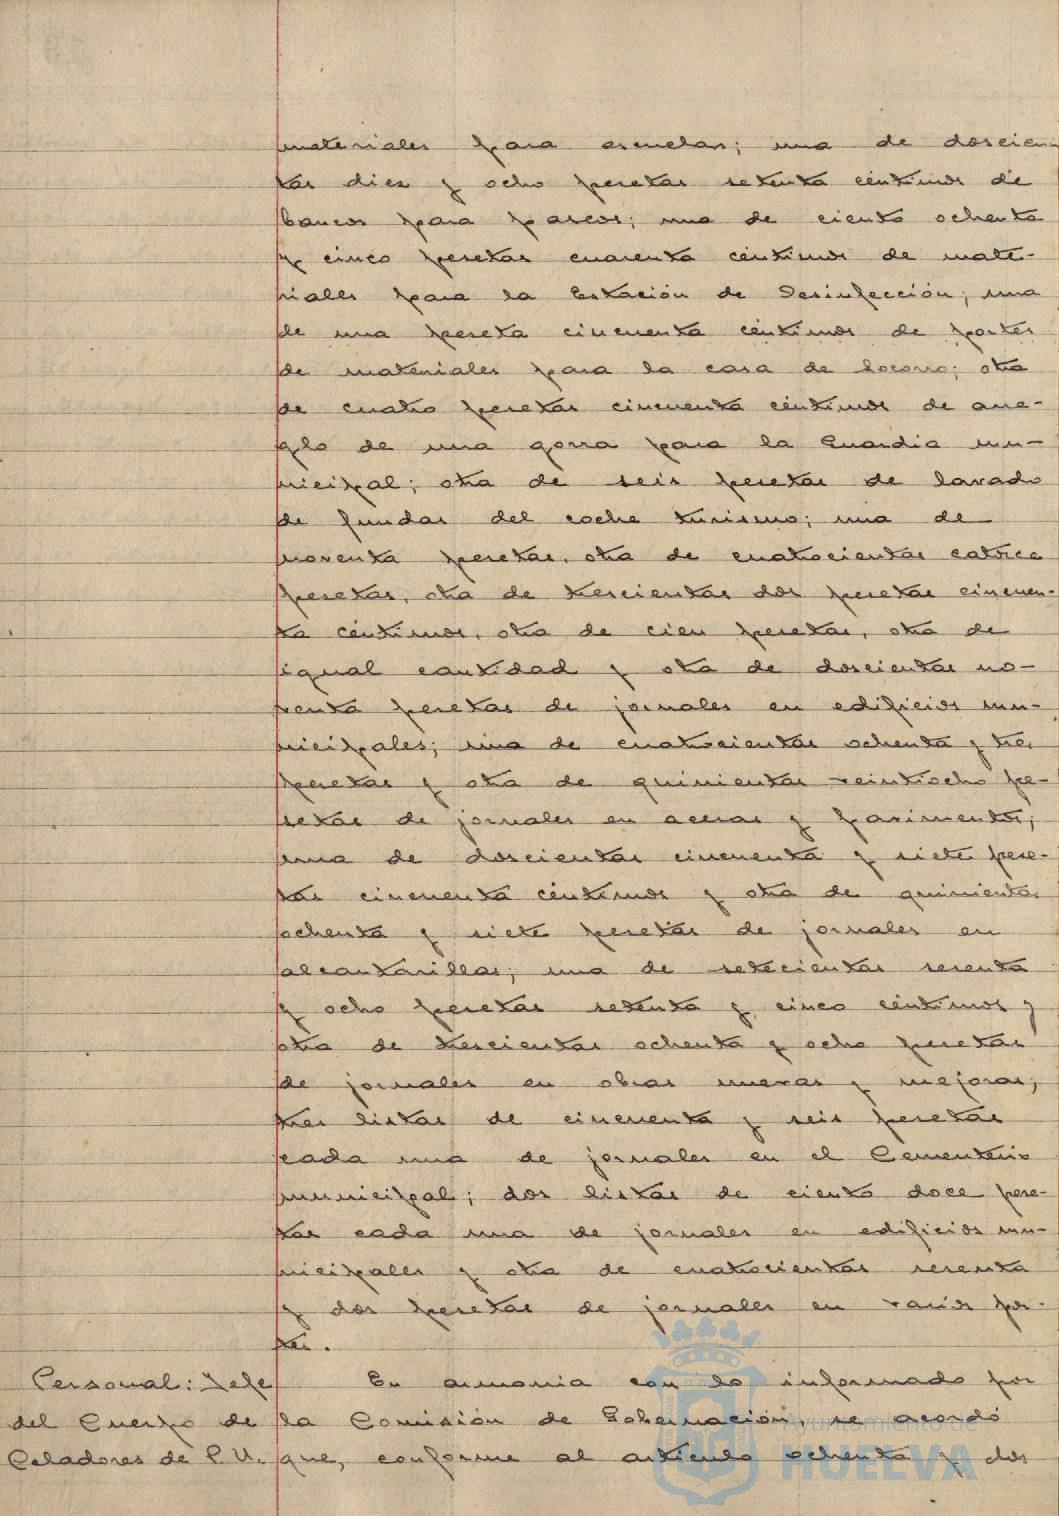 materiales para escuelas; una de doscien-
tas diez y ocho pesetas setenta céntimos de
bancos para paseos; una de ciento ochenta
y cinco pesetas cuarenta céntimos de mate-
riales para la Estación de Desinfección; una
de una peseta cincuenta céntimos de portes
de materiales para la casa de Socorro; otra
de cuatro pesetas cincuenta céntimos de arre-
glo de una gorra para la Guardia mu-
nicipal; otra de seis pesetas de lavado
de fundas del coche turismo; una de
noventa pesetas, otra de cuatrocientas catorce
pesetas, otra de trescientas dos pesetas cincuen-
ta céntimos, otra de cien pesetas, otra de
igual cantidad y otra de doscientas no-
venta pesetas de jornales en edificios mu-
nicipales; una de cuatrocientas ochenta y tres
pesetas y otra de quinientas veintiocho pe-
setas de jornales en aceras y pavimentos;
una de doscientas cincuenta y siete pese-
tas cincuenta céntimos y otra de quinientas
ochenta y siete pesetas de jornales en
alcantarillas; una de setecientas sesenta
y ocho pesetas setenta y cinco céntimos y
otra de trescientas ochenta y ocho pesetas
de jornales en obras nuevas y mejoras;
tres listas de cincuenta y seis pesetas
cada una de jornales en el Cementerio
municipal; dos listas de ciento doce pese-
tas cada una de jornales en edificios mu-
nicipales y otra de cuatrocientas sesenta
y dos pesetas de jornales en varios por-
tes.
Personal: Jefe En armonia con lo informado por
del Cuerpo de la Comisión de Gobernación, se acordó
Celadores de P. U. que, conforme al artículo ochenta y dos
Ayuntamiento de
HUELVA